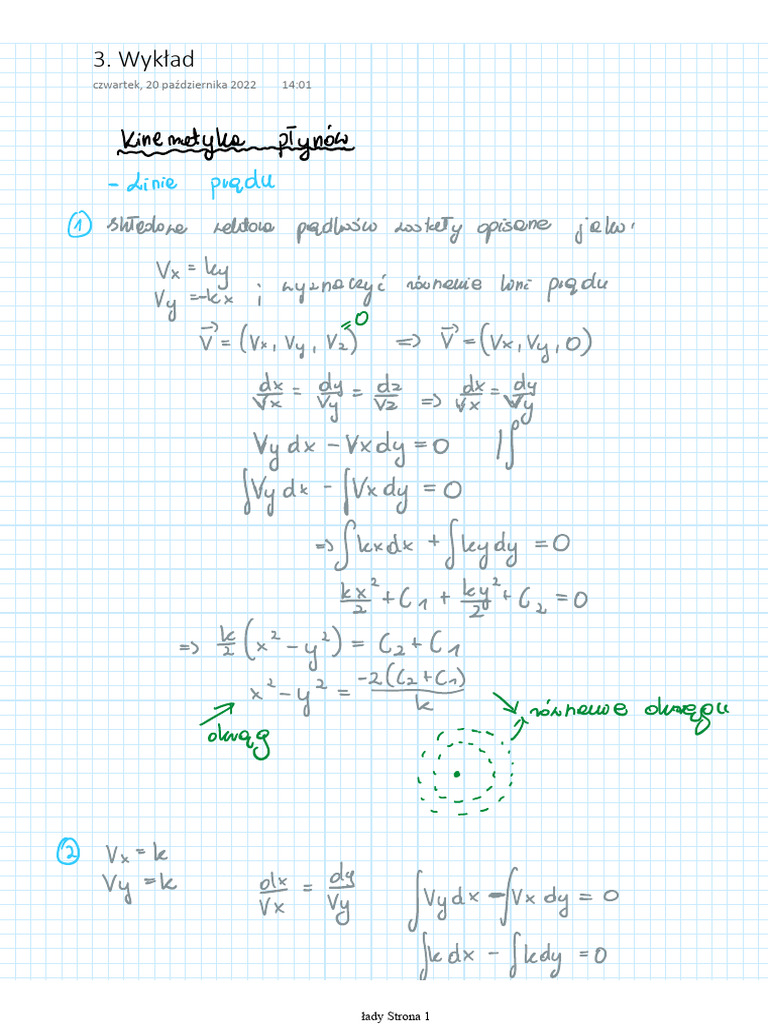 3. Wykład
czwartek, 20 października 2022 14:01
Kinematyka płynów
- Linie prądu
① składowe wektora prędkości zostały opisane jako:
Vx = ky
Vy = -kx i wyznaczyć równanie linii prądu
V⃗ = (Vx, Vy, Vz) =0 => V⃗ = (Vx, Vy, 0)
dx/Vx = dy/Vy = dz/Vz => dx/Vx = dy/Vy
Vy dx - Vx dy = 0 |∫
∫Vy dx - ∫Vx dy = 0
=> ∫kx dx + ∫ky dy = 0
kx²/2 + C1 + ky²/2 + C2 = 0
=> k/2 (x² - y²) = C2 + C1
x² - y² = -2(C2 + C1)/k
równanie okręgu
okrąg
② Vx = k
Vy = k
dx/Vx = dy/Vy
∫Vy dx - ∫Vx dy = 0
∫k dx - ∫k dy = 0
łady Strona 1